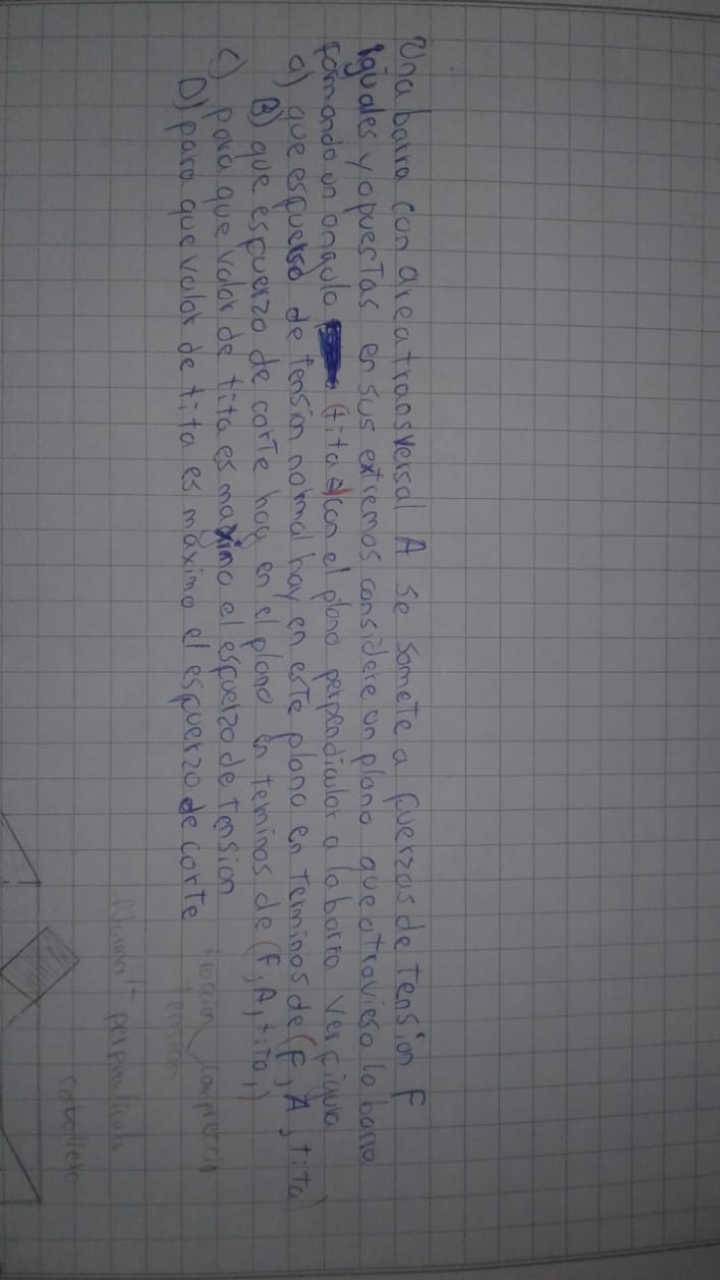 Una barra con area transversal A se somete a fuerzas de tension F
iguales y opuestas en sus extremos considere un plano que atraviesa la barra
formando un angulo (tita) con el plano perpendicular a la barra ver figura
a) que esfuerso de tension normal hay en este plano en terminos de (F, A, tita)
B) que esfuerzo de corte hay en el plano en teminos de (F, A, tita,)
C) para que valor de tita es maximo el esfuerzo de tension
D) para que valor de tita es máximo el esfuerzo de corte
traccion
tension
Normal perpendicular